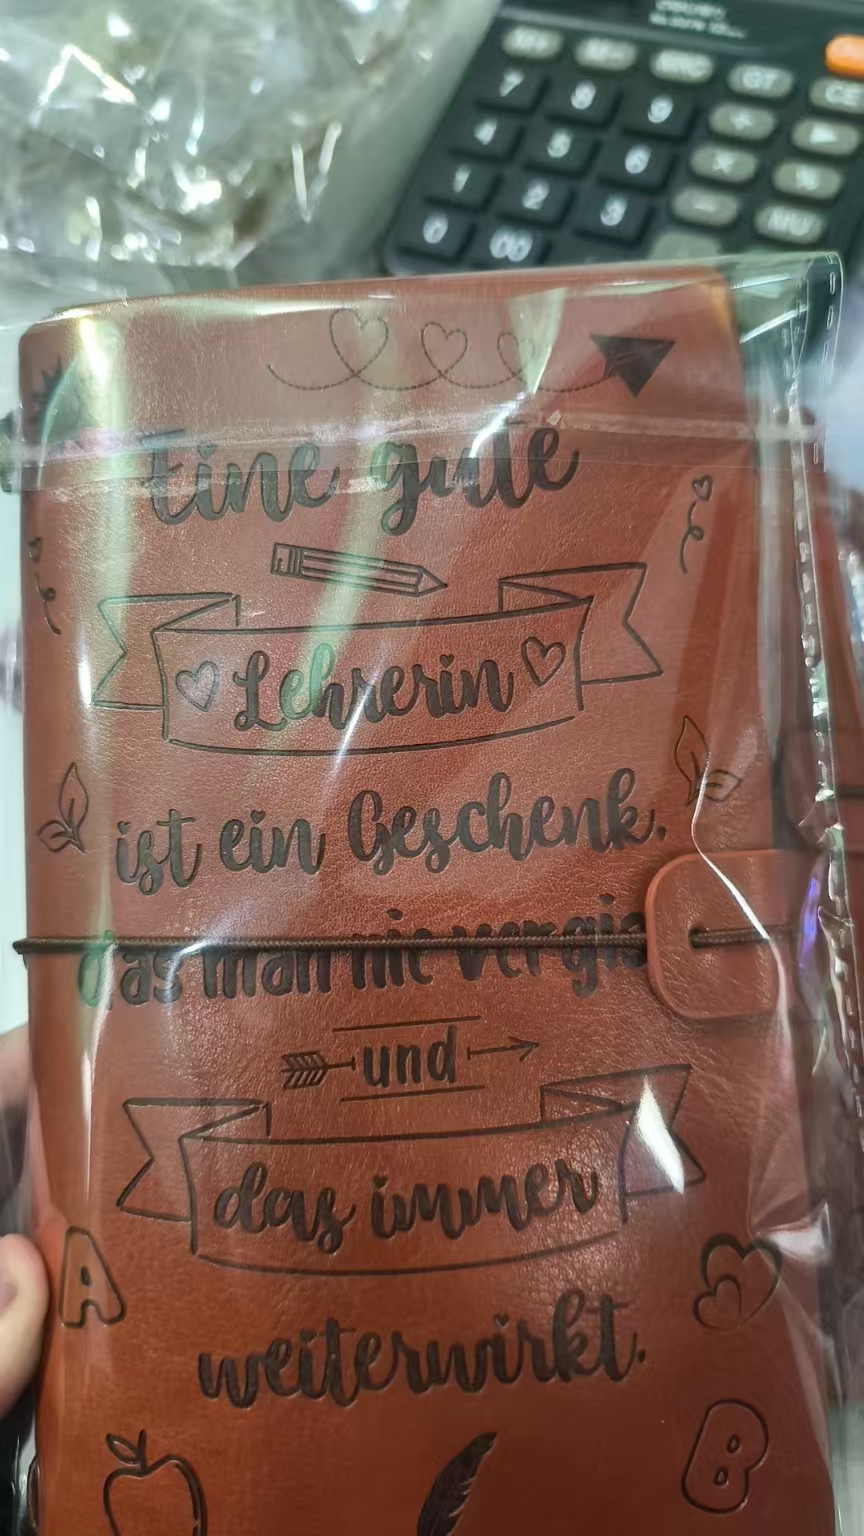 7 8 9
4 5 6
1 2 3
0 00
GT
CE
Eine gute
Lehrerin
ist ein Geschenk,
das man nie
und
das immer
A
weiterwirkt.
B